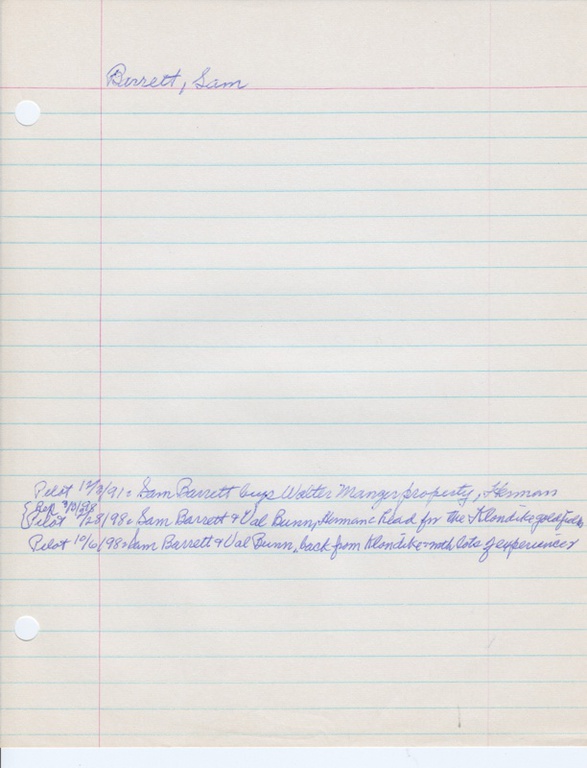 Barrett, Sam
Pilot 12/3/91: Sam Barrett buys Walter Manger property, Herman
{Rep 3/31/98
{Pilot 4/28/98: Sam Barrett & Val Bunn, Hermann head for the Klondike goldfields
Pilot 10/6/98: Sam Barrett & Val Bunn, back from Klondike with lots of experience